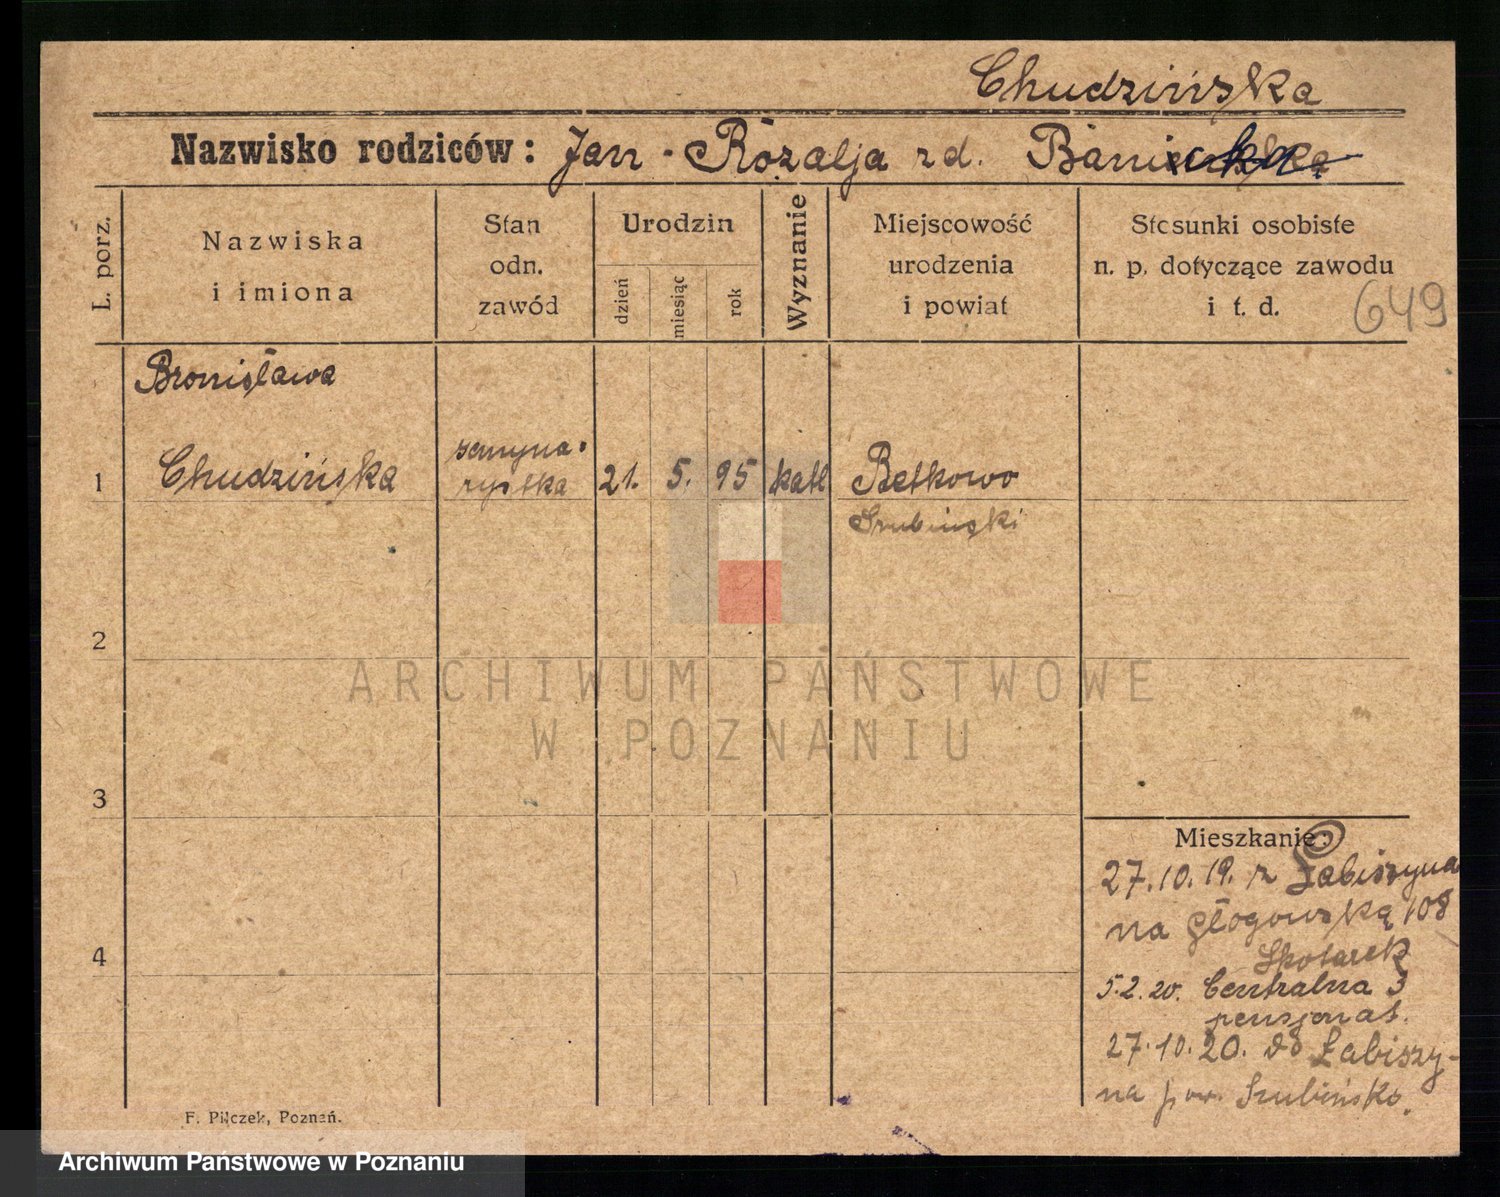 Chudzińska
Nazwisko rodziców: Jan - Rozalja zd.
L. porz.
Nazwiska
i imiona
Stan
odn.
zawód
Urodzin
dzień
miesiąc
rok
Wyznanie
Miejscowość
urodzenia
i powiat
Stosunki osobiste
n. p. dotyczące zawodu
i t. d.
649
Bronisława
1 Chudzińska
semyna-
rystka
21. 5. 95 katl Retkowo
Szubiński
2
3
4
ARCHIWUM PAŃSTWOWE
W POZNANIU
Mieszkanie:
27.10.19. z Łabiszyna
na Głogowską 108
Skotarek
5.2.20. Centralna 3
pensjonat.
27.10.20. do Łabiszy-
na pow. Szubińsko.
F. Pilczek, Poznań.
Archiwum Państwowe w Poznaniu